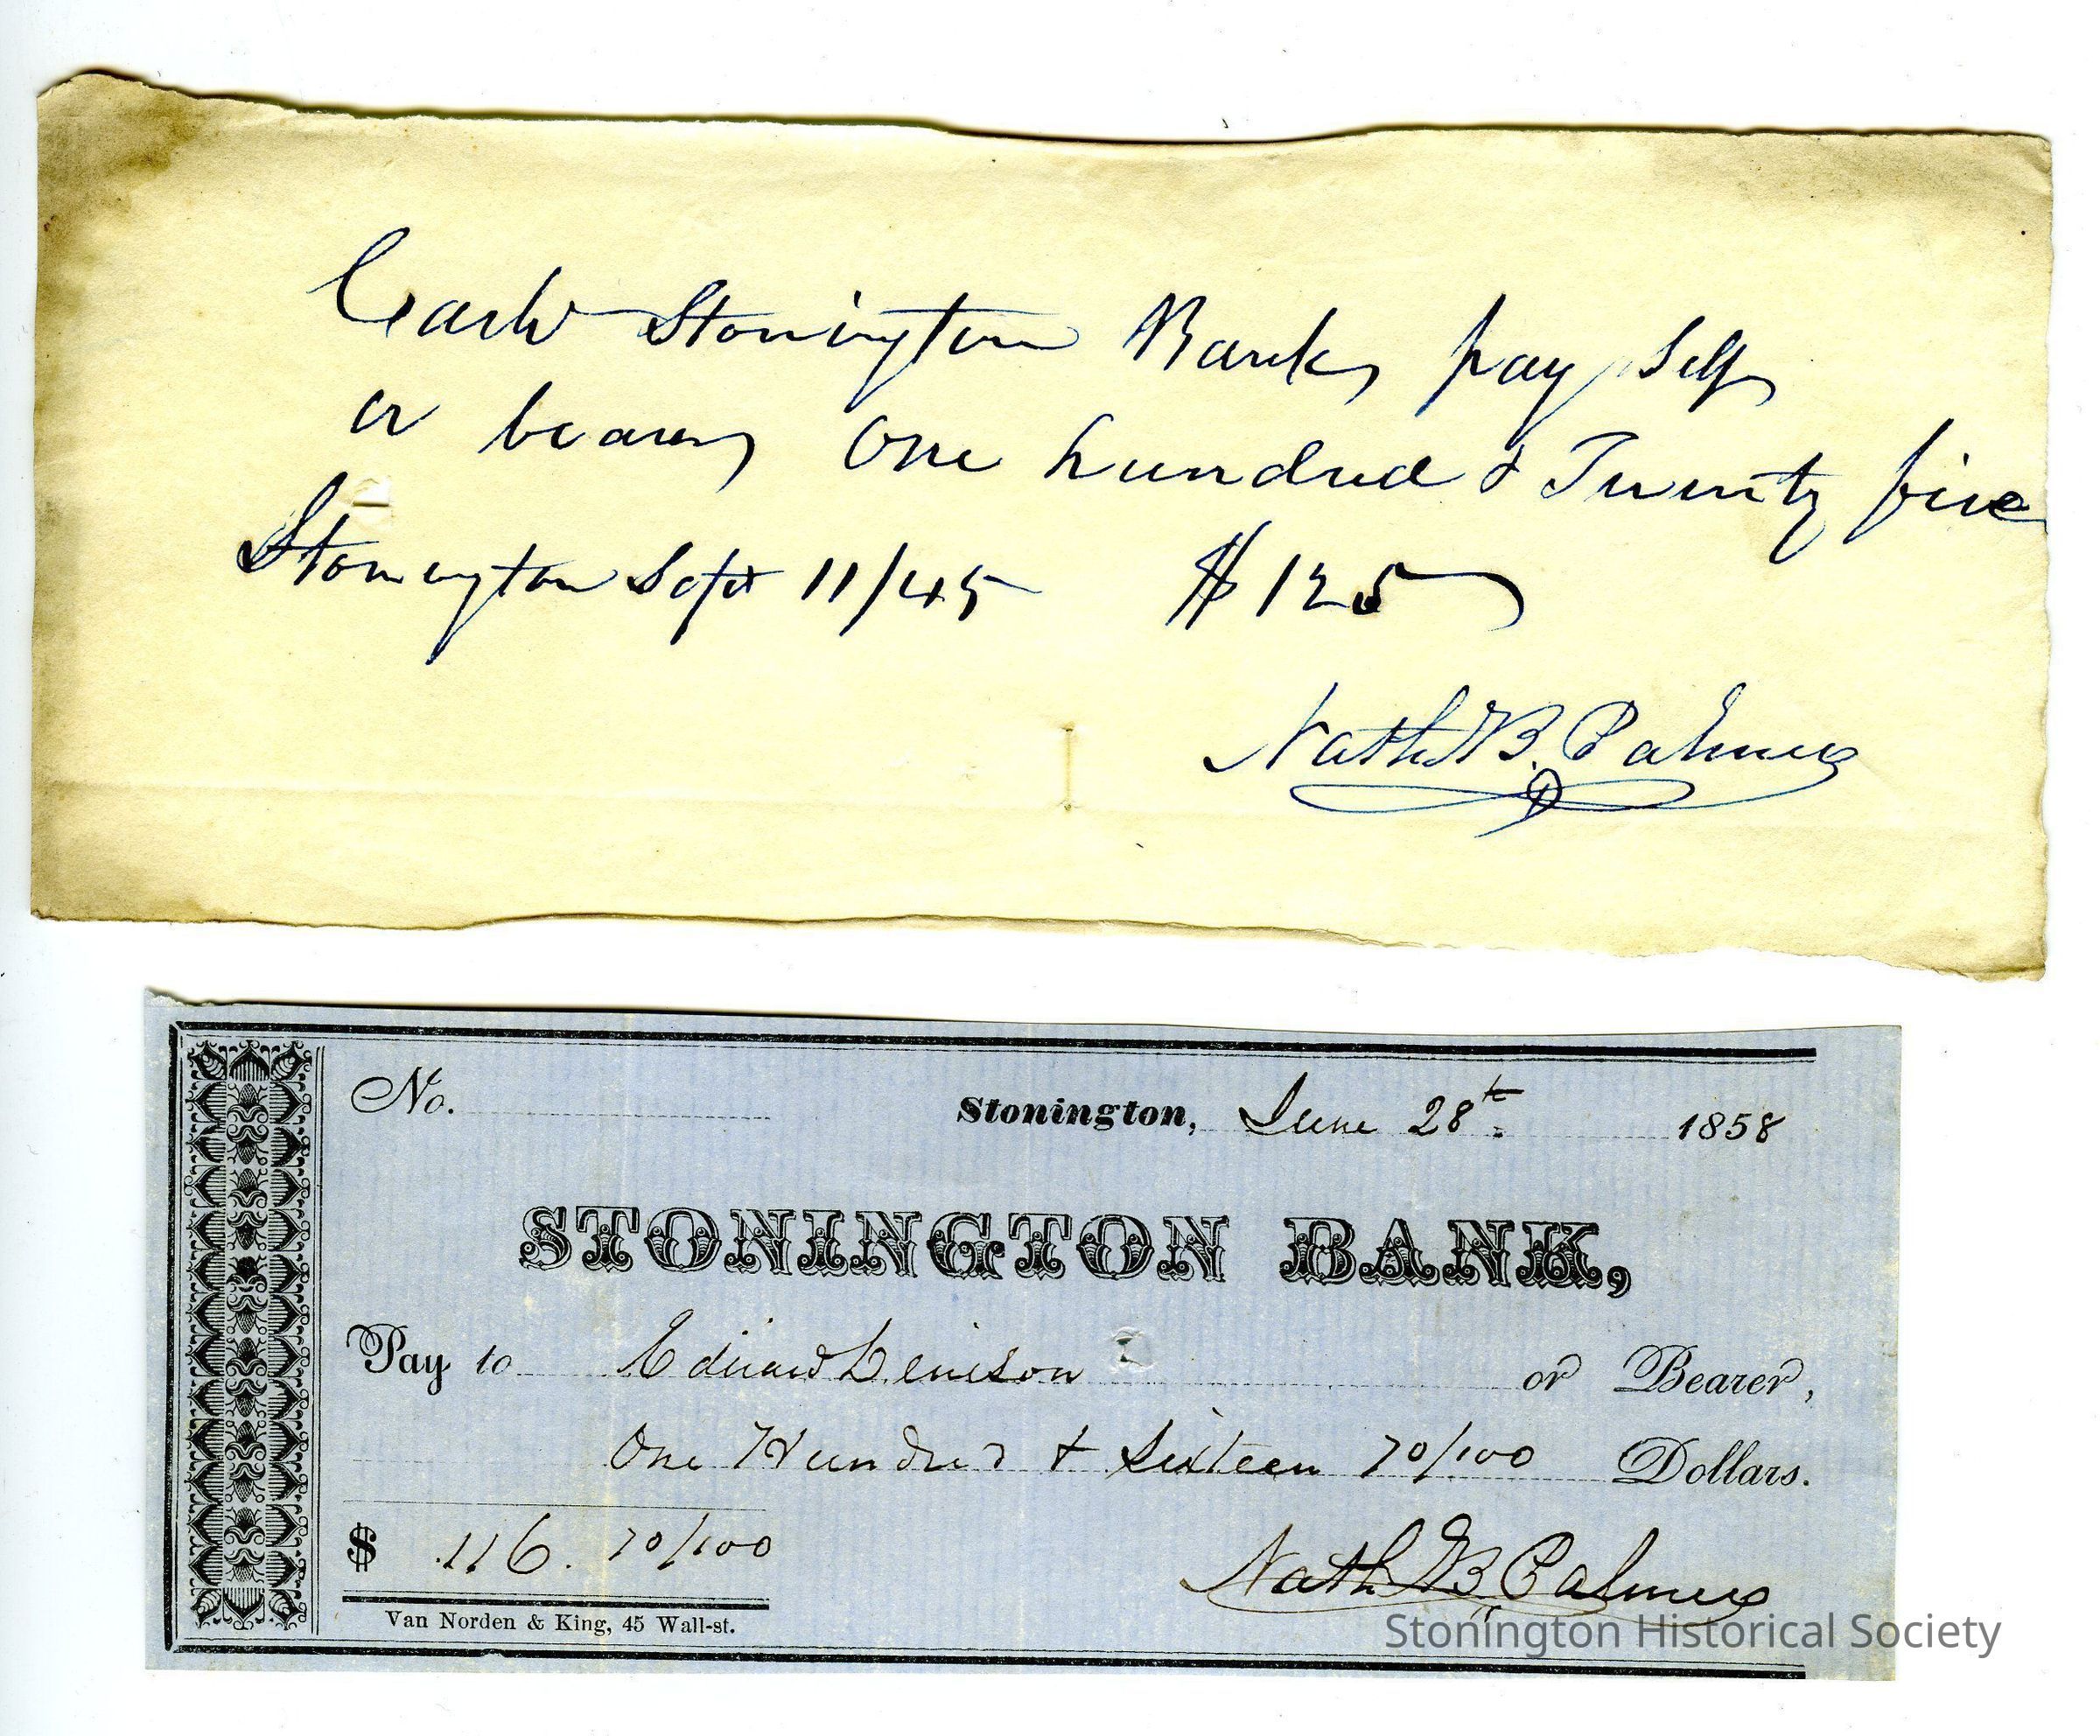 Cash Stonington Bank pay Self
or bearer One hundred & Twenty five
Stonington Sept 11/45 $125
Nath. B. Palmer
No. Stonington, June 28th 1858
STONINGTON BANK,
Pay to Edward Denison or Bearer,
One Hundred & Sixteen 70/100 Dollars.
$ 116. 70/100
Nath. B. Palmer
Van Norden & King, 45 Wall-st.
Stonington Historical Society